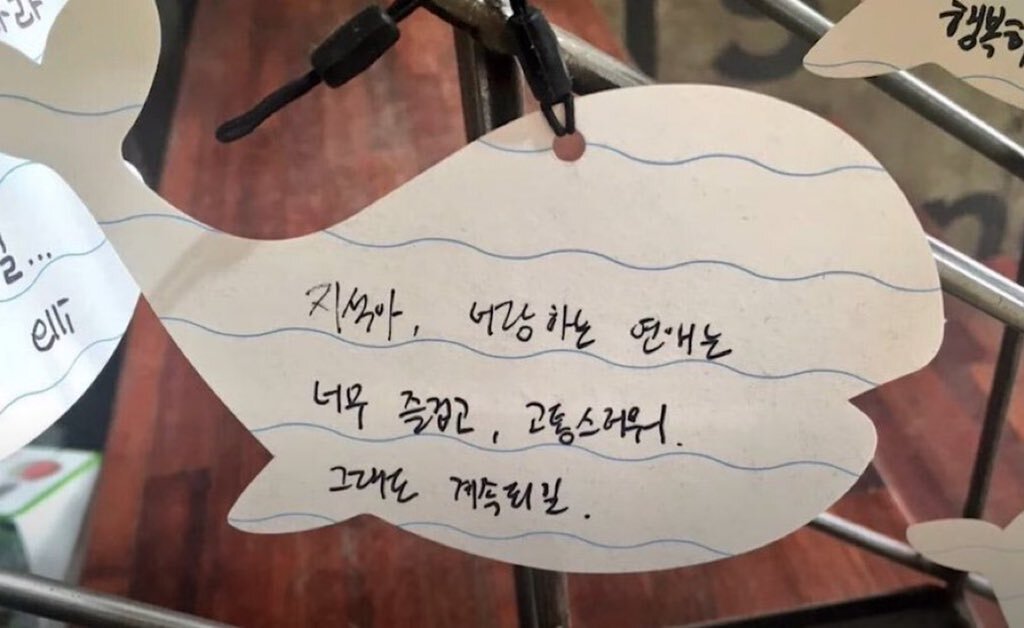 지석아, 너랑하는 연애는
너무 즐겁고, 고통스러워.
그래도 계속되길.
행복하
길...
elli